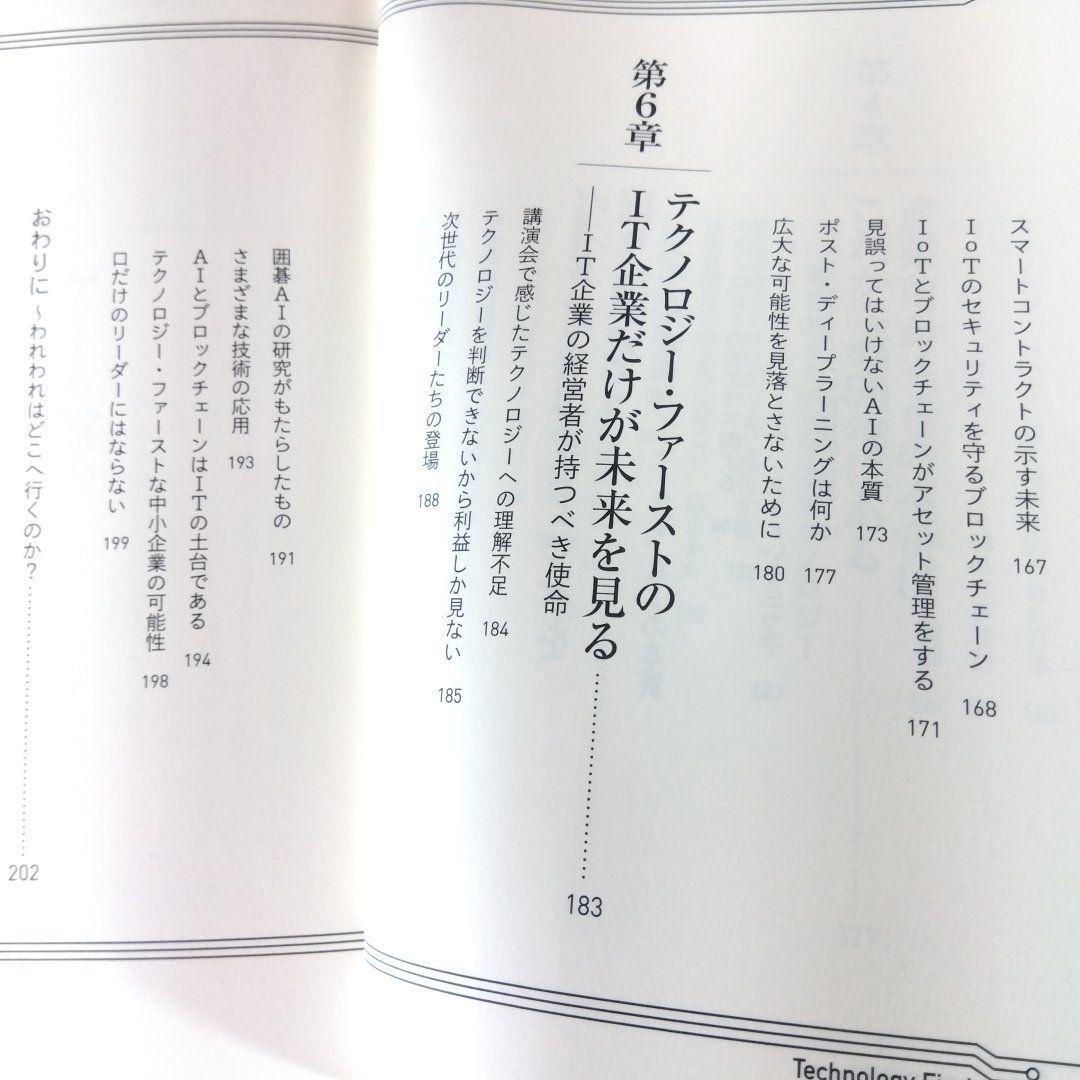 スマートコントラクトの示す未来 167
IoTのセキュリティを守るブロックチェーン 168
IoTとブロックチェーンがアセット管理をする 171
見誤ってはいけないAIの本質 173
ポスト・ディープラーニングは何か 177
広大な可能性を見落とさないために 180
第6章
テクノロジー・ファーストの
IT企業だけが未来を見る
――IT企業の経営者が持つべき使命 183
講演会で感じたテクノロジーへの理解不足 184
テクノロジーを判断できないから利益しか見ない 185
次世代のリーダーたちの登場 188
囲碁AIの研究がもたらしたもの 191
さまざまな技術の応用 193
AIとブロックチェーンはITの土台である 194
テクノロジー・ファーストな中小企業の可能性 198
口だけのリーダーにはならない 199
おわりに ～われわれはどこへ行くのか？ 202
Technology